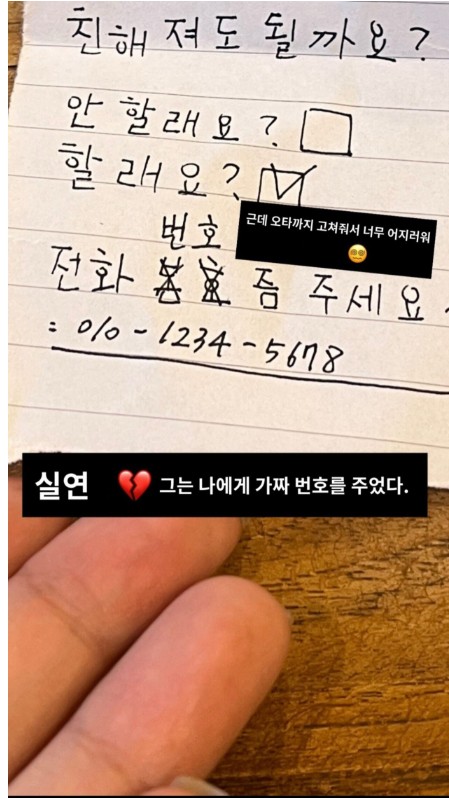 친해 져도 될까요?
안 할래요?
할래요?
근데 오타까지 고쳐줘서 너무 어지러워
😵‍💫
번호
전화 즘 주세요.
: 010-1234-5678
실연 💔 그는 나에게 가짜 번호를 주었다.